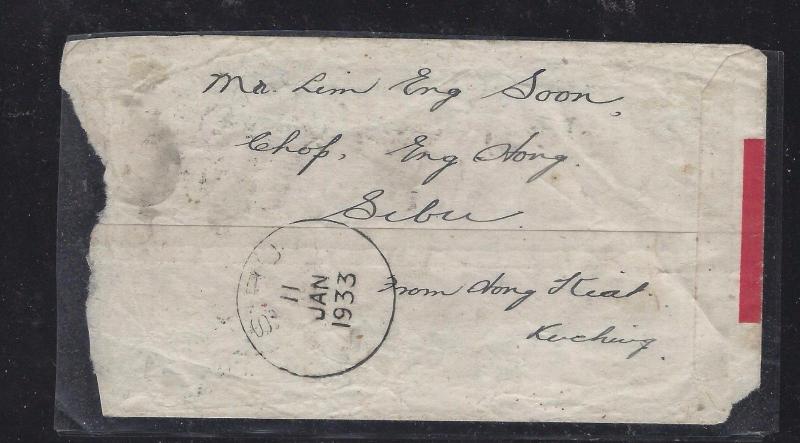 Mr. Lim Eng Soon,
Chop, Eng Hong.
Sibu.
From Hong Kiat.
Kuching.
SIBU
11
JAN
1933